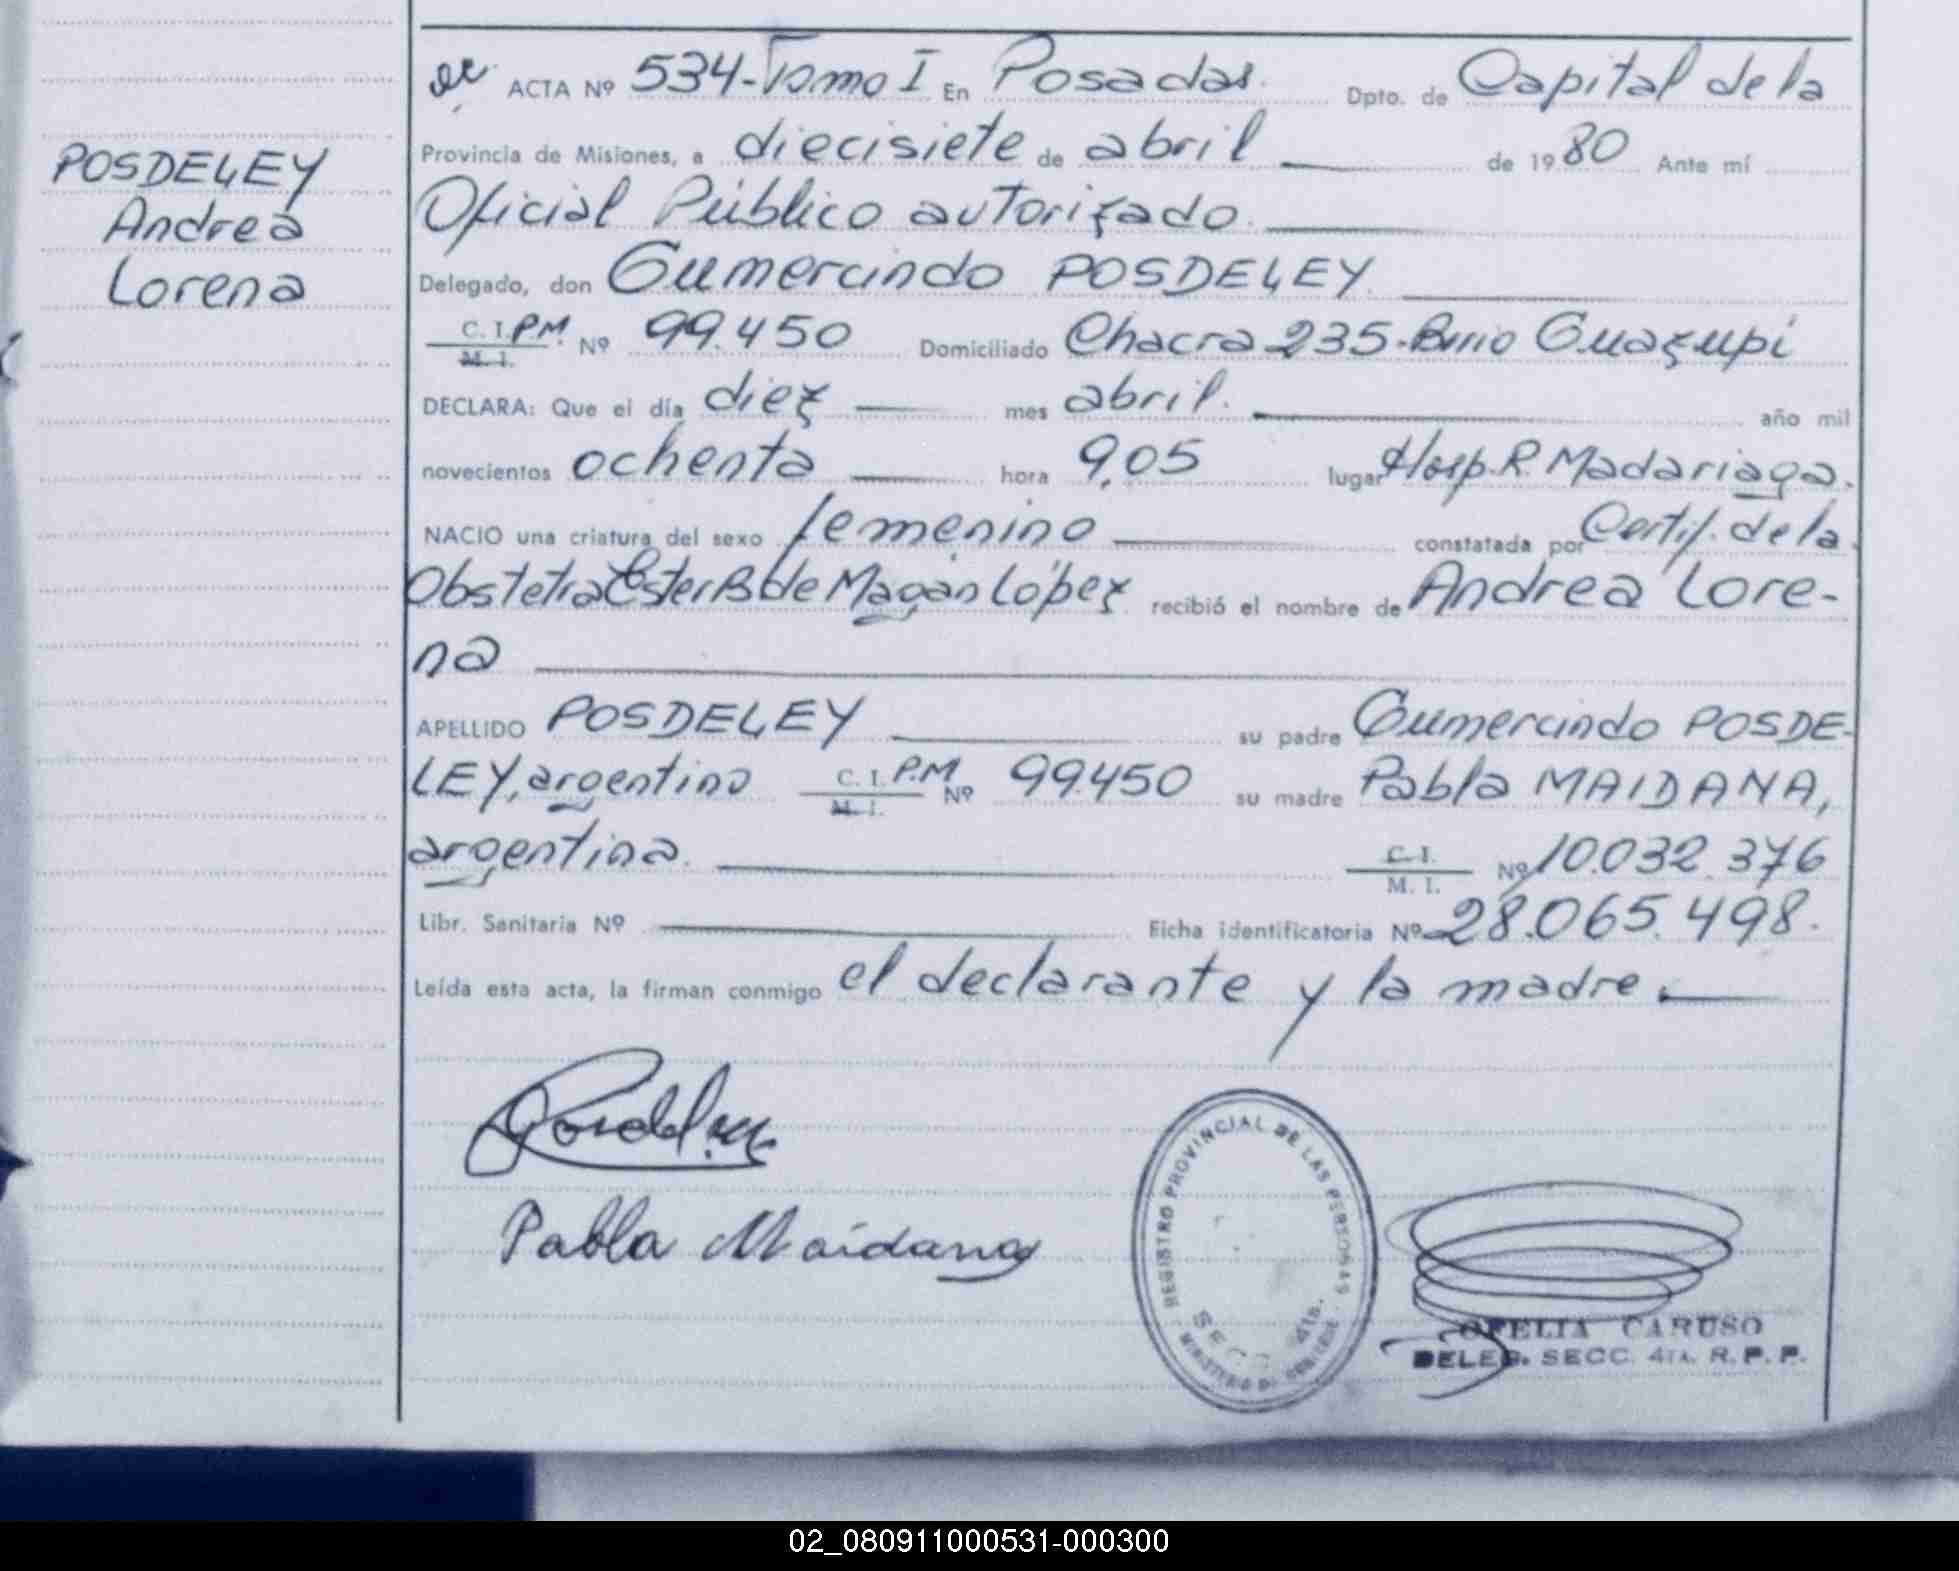 POSDELEY
Andrea
Lorena
ACTA Nº 534-Tomo I En Posadas. Dpto. de Capital de la
Provincia de Misiones, a diecisiete de abril de 1980 Ante mí
Oficial Público autorizado.
Delegado, don Gumercindo POSDELEY.
C. I. P.M. M. I. Nº 99.450 Domiciliado Chacra 235-Barrio Guazupi
DECLARA: Que el día diez mes abril. año mil
novecientos ochenta hora 9,05 lugar Hosp. R. Madariaga.
NACIO una criatura del sexo femenino constatada por Certif. de la
Obstetra Ester B de Magán López recibió el nombre de Andrea Lore-
na
APELLIDO POSDELEY su padre Gumercindo POSDE-
LEY, argentino C. I. P.M M. I. Nº 99.450 su madre Pabla MAIDANA,
argentina. C. I. M. I. Nº 10.032.376
Libr. Sanitaria Nº Ficha identificatoria Nº 28.065.498.
Leída esta acta, la firman conmigo el declarante y la madre.
Pabla Maidana
REGISTRO PROVINCIAL DE LAS PERSONAS
SECC. 4ta.
OFELIA CARUSO
DELEG. SECC. 4TA. R. P. P.
02_080911000531-000300